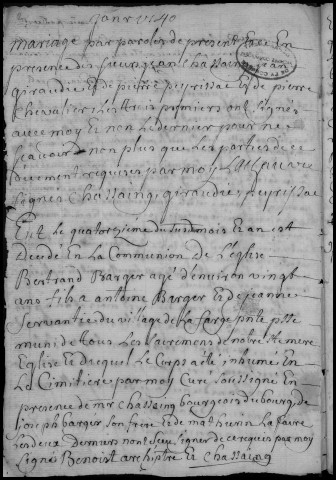 Janv 1740
mariage par paroles de présent fait En
présence des sieurs jean Chassaing
giraudie Et de pierre peyrissac Et de pierre
Chevalier les trois premiers ont signés
avec moy Et non le dernier pour ne
scavoir non plus que les parties de ce
duement requis par moy
signé Chassaing, giraudie, peyrissac
Et Le quatorzieme du susd mois Et an Est
Decedé En La Communion de L'eglise
Bertrand Barger agé d'environ vingt
ans fils a antoine Barger Et de jeanne
Servantie du village de La farge pnte psse
muni de tous Les sacremens de nôtre Ste mere
Eglise Et duquel Le Corps a été inhumé En
Le Cimitiere par moy Curé soussigné En
presence de mr Chassaing bourgeois du bourg, de
joseph barger son frere Et de mathurin La faire
Les deux Derniers nont sceu signer de ce requis par moy
signé Benoist archiptre Et Chassaing